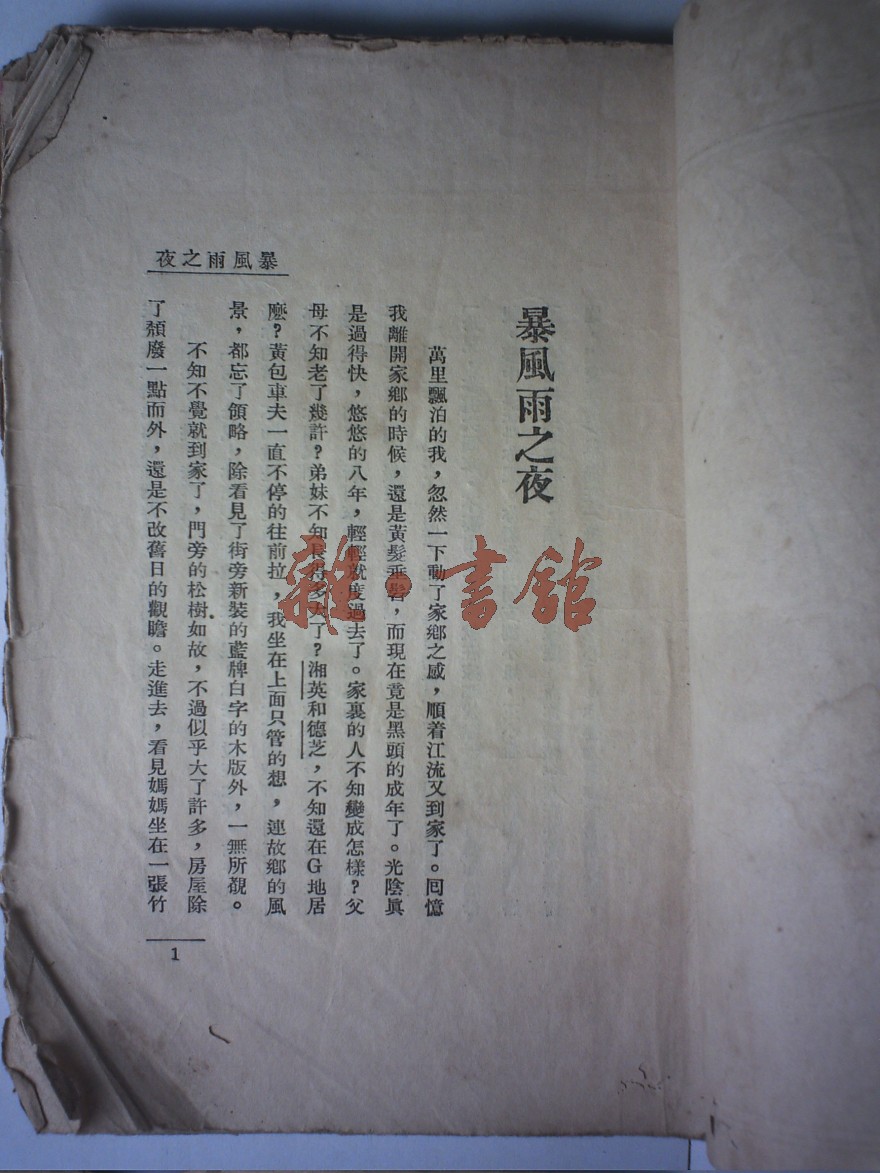 暴風雨之夜
暴風雨之夜
萬里飄泊的我，忽然一下動了家鄉之感，順着江流又到家了。囘憶
我離開家鄉的時候，還是黃髮垂髫，而現在竟是黑頭的成年了。光陰眞
是過得快，悠悠的八年，輕輕就度過去了。家裏的人不知變成怎樣？父
母不知老了幾許？弟妹不知長得多大了？湘英和德芝，不知還在G地居
麽？黃包車夫一直不停的往前拉，我坐在上面只管的想，連故鄉的風
景，都忘了領略，除看見了街旁新裝的藍牌白字的木版外，一無所覩。
不知不覺就到家了，門旁的松樹如故，不過似乎大了許多，房屋除
了頹廢一點而外，還是不改舊日的觀瞻。走進去，看見媽媽坐在一張竹
1
雜·書館